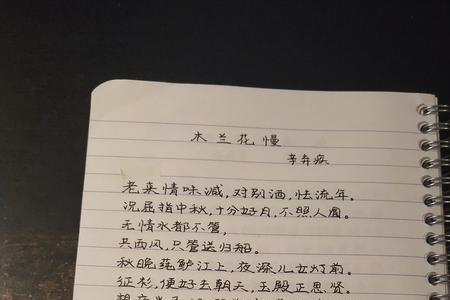 木兰花慢
辛弃疾
老来情味减,对别酒,怯流年。
况屈指中秋,十分好月,不照人圆。
无情水都不管,
共西风,只管送归船。
秋晚莼鲈江上,夜深儿女灯前。
征衫,便好去朝天,玉殿正思贤。
想夜半